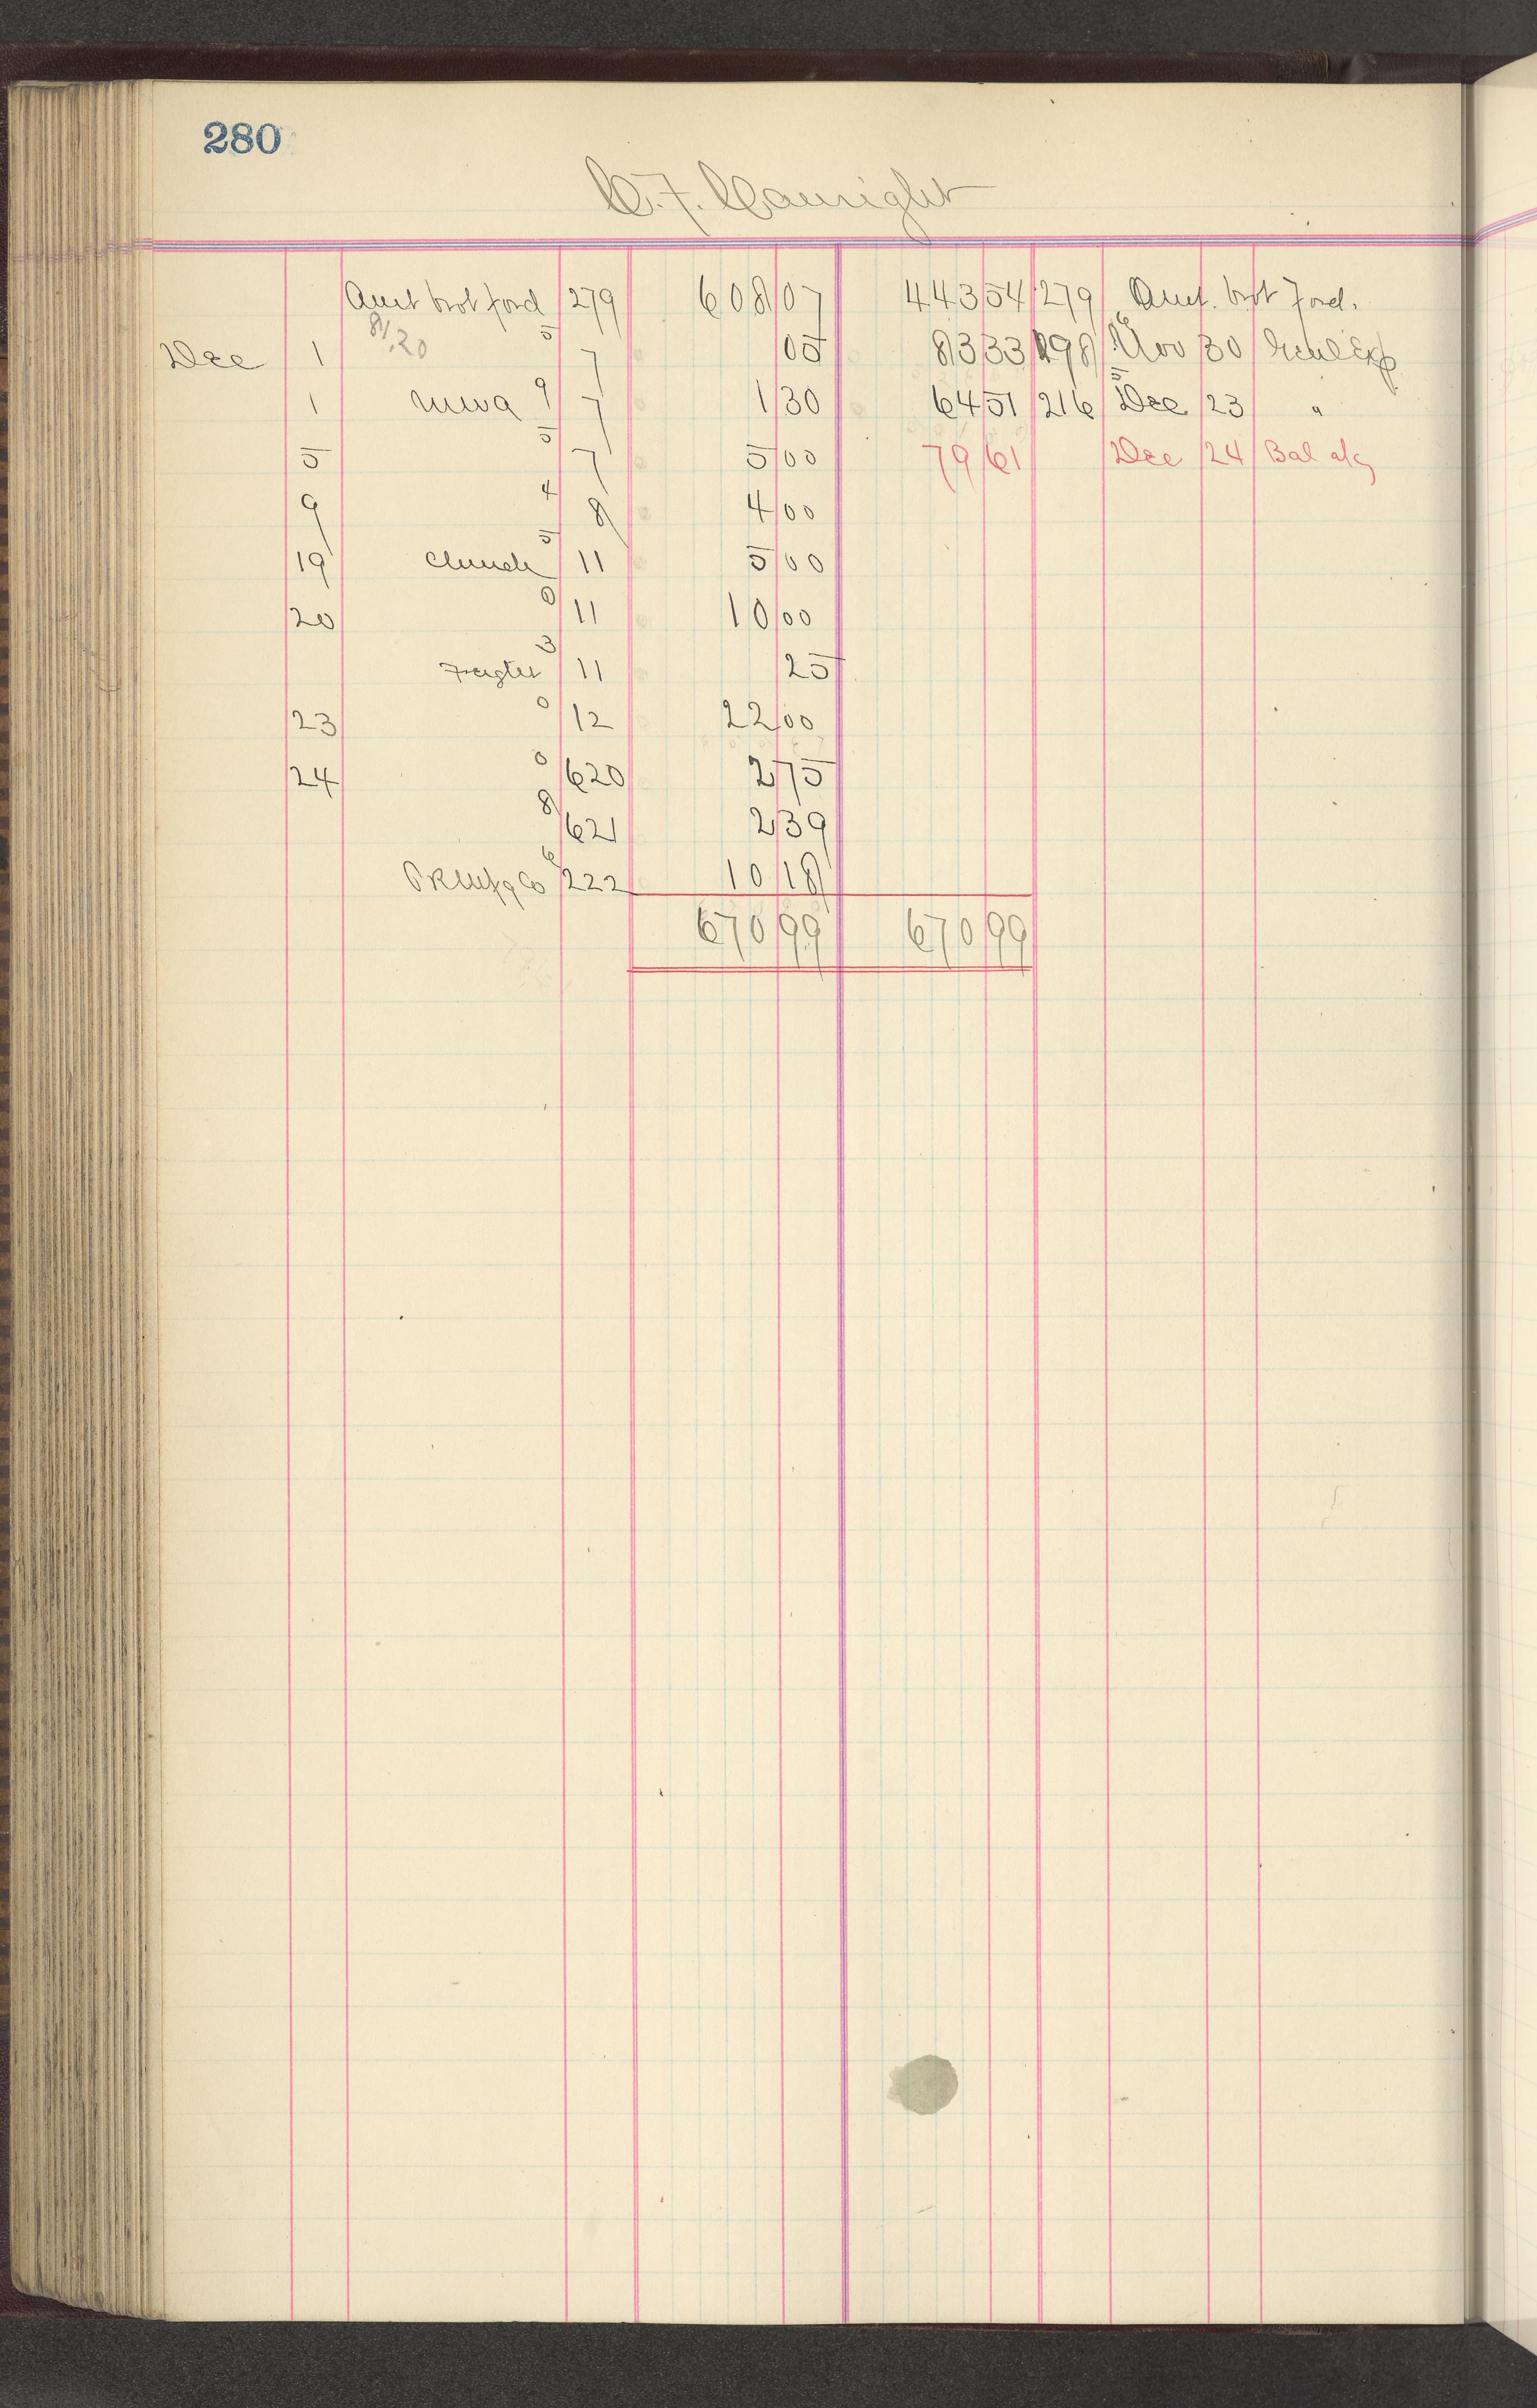 280
C. F. Canright
Amt brot ford 279 608 07 443 54 279 Amt. brot Ford.
81.20
Dec 1 5 7 05 83 33 198 6 Nov 30 Genl Exp
1 9 7 1 30 64 51 216 5 Dec 23 "
5 5 7 5 00 79 61 Dec 24 Bal a/c
9 4 8 4 00
19 Church 5 11 5 00
20 0 11 10 00
3 11 25
23 0 12 22 00
24 0 620 2 75
8 621 2 39
6 222 10 18
670 99 670 99